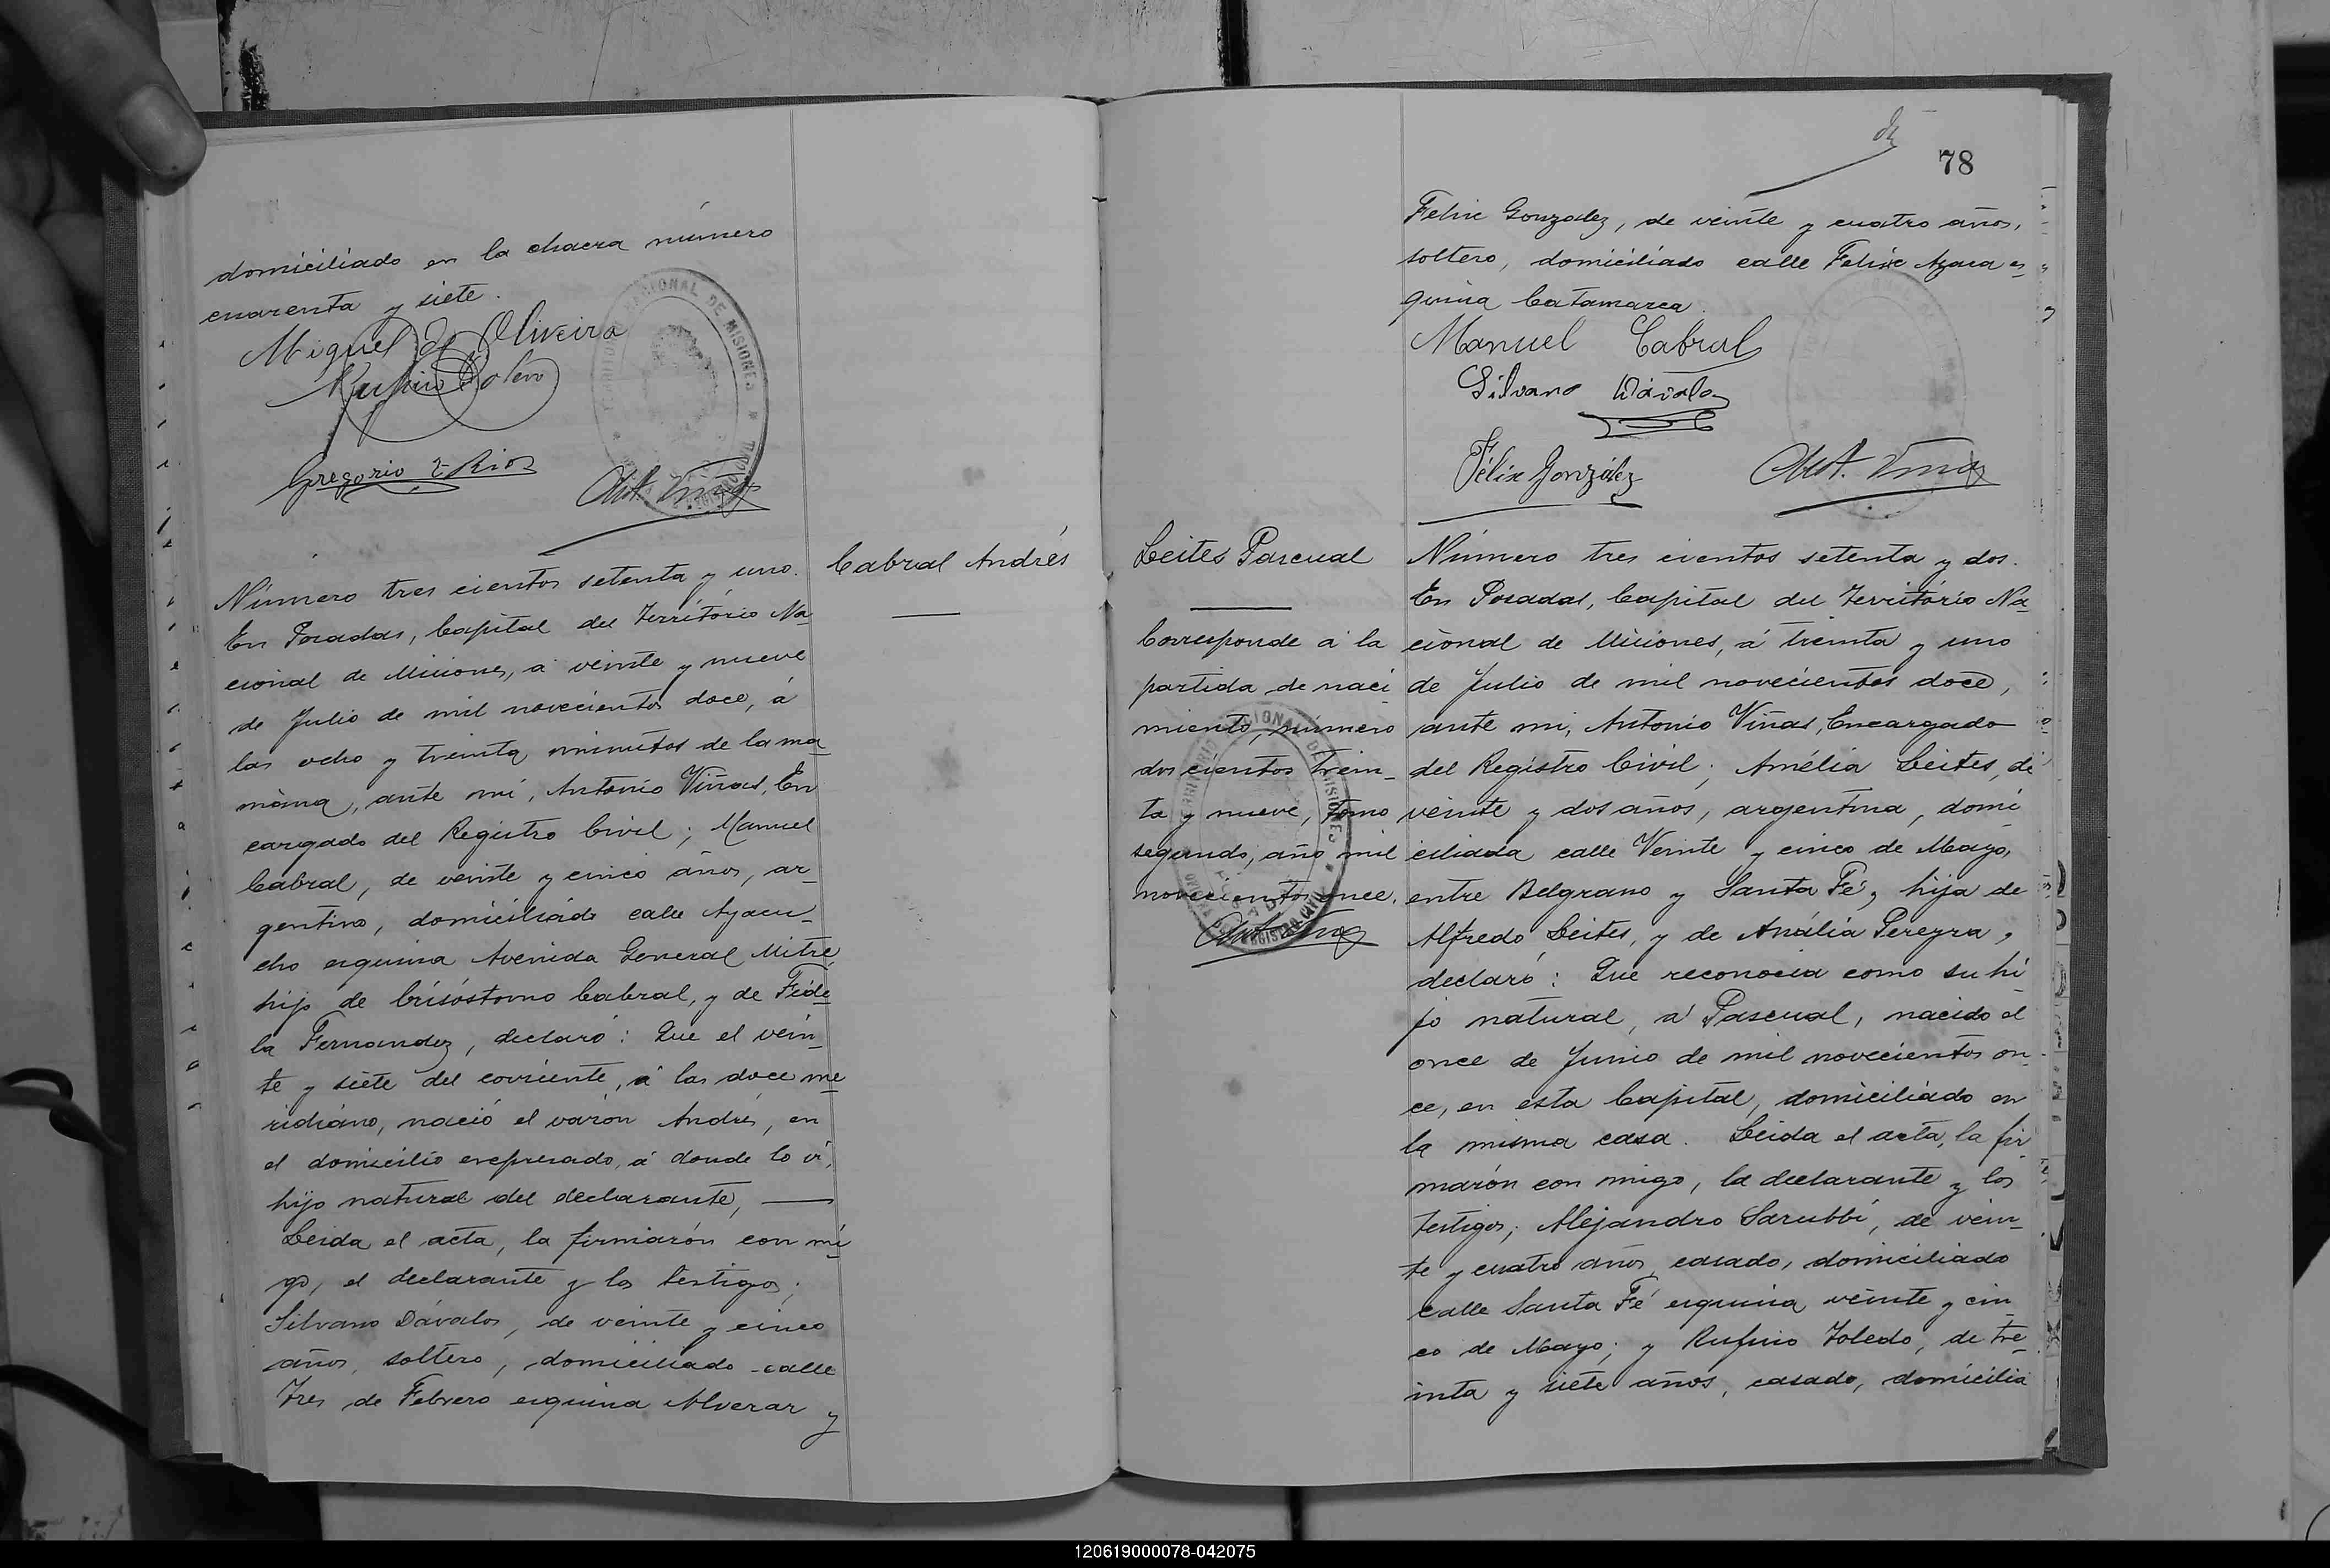 domiciliado en la chacra número
cuarenta y siete.
Miguel de Oliveira
Rufino Toledo
Gregorio E Rios
Ant. Viñas
Número tres cientos setenta y uno.
En Posadas, Capital del Território Na
cional de Misiones, á veinte y nueve
de Julio de mil novecientos doce, á
las ocho y treinta minutos de la ma
ñana, ante mi, Antonio Viñas, En
cargado del Registro Civil; Manuel
Cabral, de veinte y cinco años, ar_
gentino, domiciliado calle Ayacu_
cho esquina Avenida General Mitre,
hijo de Crisóstomo Cabral, y de Fide
la Fernandez, declaró: Que el vein_
te y siete del corriente, á las doce me
ridiano, nació el varón Andrés, en
el domicilio expresado, á donde lo ví,
hijo natural del declarante, —
Leida el acta, la firmarón con mi
go, el declarante y los testigos;
Silvano Dávalos, de veinte y cinco
años, soltero, domiciliado calle
Tres de Febrero esquina Alvear y
Cabral Andrés
78
Felix Gonzalez, de veinte y cuatro años,
soltero, domiciliado calle Felix Azara es_
quina Catamarca.
Manuel Cabral
Silvano Dávalos
Félix González
Ant. Viñas
Leites Pascual
Corresponde á la
partida de naci
miento, número
dos cientos trein_
ta y nueve, tomo
segundo, año mil
novecientos once.
Ant. Viñas
Número tres cientos setenta y dos.
En Posadas, Capital del Território Na
cional de Misiones, á treinta y uno
de Julio de mil novecientos doce,
ante mi, Antonio Viñas, Encargado
del Registro Civil; Amélia Leites, de
veinte y dos años, argentina, domi
ciliada calle Veinte y cinco de Mayo,
entre Belgrano y Santa Fé, hija de
Alfredo Leites, y de Anália Pereyra,
declaró: Que reconocia como su hi
jo natural, á Pascual, nacido el
once de Junio de mil novecientos on_
ce, en esta Capital, domiciliado en
la misma casa. Leida el acta, la fir
marón con migo, la declarante y los
testigos; Alejandro Sarubbi, de vein_
te y cuatro años, casado, domiciliado
calle Santa Fé esquina veinte y cin_
co de Mayo; y Rufino Toledo, de tre_
inta y siete años, casado, domicilia
120619000078-042075